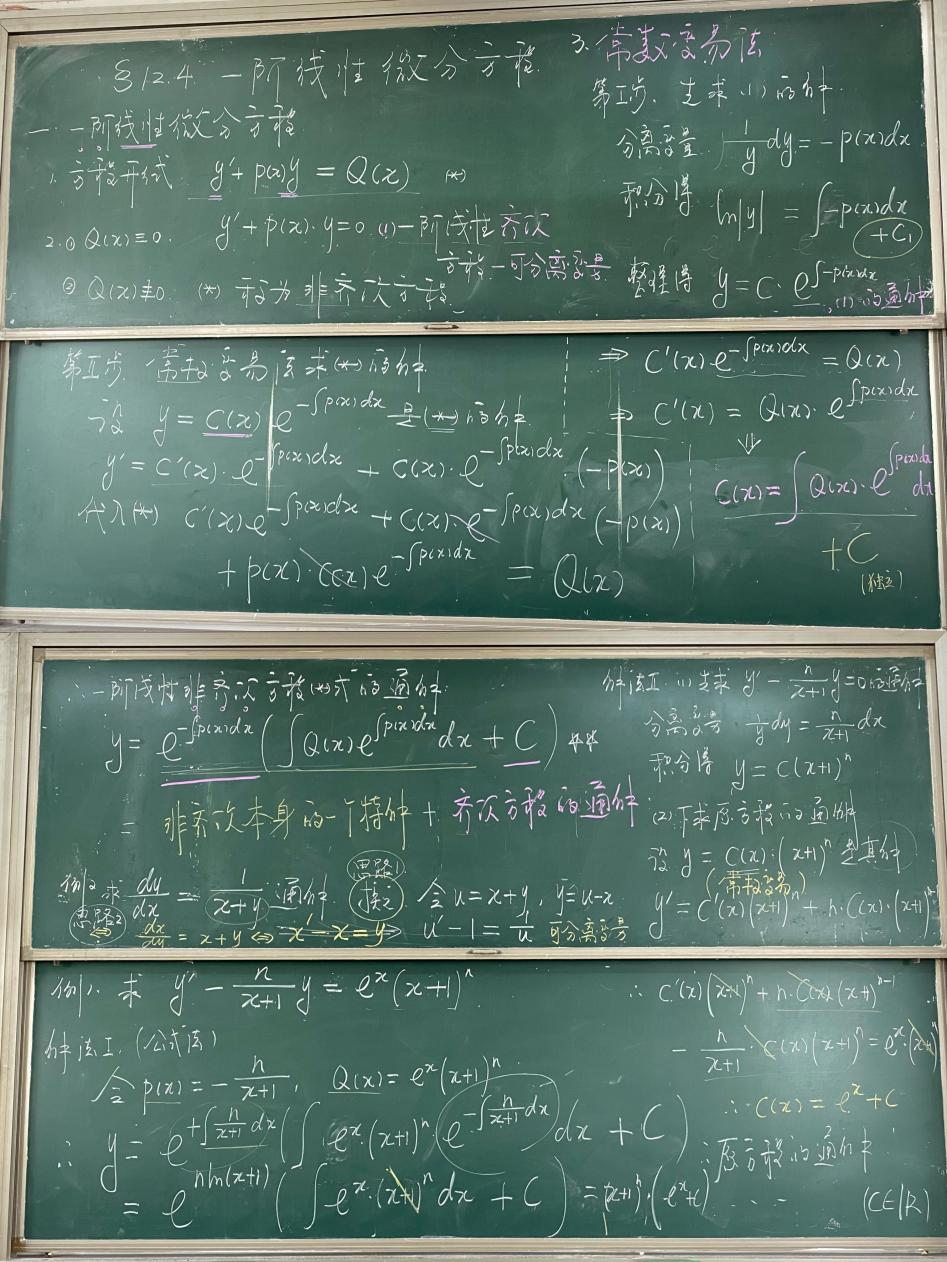 §12.4. 一阶线性微分方程
一. 一阶线性微分方程
1. 方程形式 y' + p(x)y = Q(x) (*)
2. ① Q(x)≡0. y' + p(x)·y = 0 (1) 一阶线性齐次
方程 — 可分离变量
② Q(x)≢0. (*) 称为非齐次方程
3. 常数变易法
第I步. 先求(1)的解.
分离变量 ∫ 1/y dy = -p(x)dx
积分得 ln|y| = ∫-p(x)dx
+C₁
整理得 y = C·e^{∫-p(x)dx} (1)的通解
第II步. 常数变易 求(*)的解
设 y = C(x) e^{-∫p(x)dx} 是(*)的解
y' = C'(x)·e^{-∫p(x)dx} + C(x)·e^{-∫p(x)dx} (-p(x))
代入(*) C'(x)e^{-∫p(x)dx} + C(x)·e^{-∫p(x)dx} (-p(x))
+ p(x)·C(x)e^{-∫p(x)dx} = Q(x)
⇒ C'(x)e^{-∫p(x)dx} = Q(x)
⇒ C'(x) = Q(x)·e^{∫p(x)dx}
⇓
C(x) = ∫Q(x)·e^{∫p(x)dx} dx
+C
(独立)
∴ 一阶线性非齐次方程(*)式的通解
y = e^{-∫p(x)dx} (∫Q(x)e^{∫p(x)dx} dx + C) **
= 非齐次本身的一个特解 + 齐次方程的通解
例2. 求 dy/dx = 1/(x+y) 通解
思路1
换元
令 u = x+y, y = u-x
思路2
⇔ dx/dy = x+y ⇔ x' - x = y
⇒ u' - 1 = 1/u 可分离变量
解法II (1) 先求 y' - n/(x+1) y = 0 的通解
分离变量 1/y dy = n/(x+1) dx
积分得 y = C(x+1)^n
(2) 下求原方程的通解
设 y = C(x)·(x+1)^n 是其解
(常数变易)
y' = C'(x)(x+1)^n + n·C(x)·(x+1)^{n-1}
例1. 求 y' - n/(x+1) y = e^x (x+1)^n
解法I. (公式法)
令 p(x) = - n/(x+1), Q(x) = e^x (x+1)^n
∴ y = e^{+∫ n/(x+1) dx} (∫ e^x·(x+1)^n·e^{-∫ n/(x+1) dx} dx + C)
= e^{n ln(x+1)} (∫ e^x·(x+1)^n dx + C) = (x+1)^n·(e^x+C)
∴ C'(x)(x+1)^n + n·C(x)(x+1)^{n-1}
- n/(x+1)·C(x)(x+1)^n = e^x·(x+1)^n
∴ C(x) = e^x + C
∴ 原方程的通解
... (C∈R)